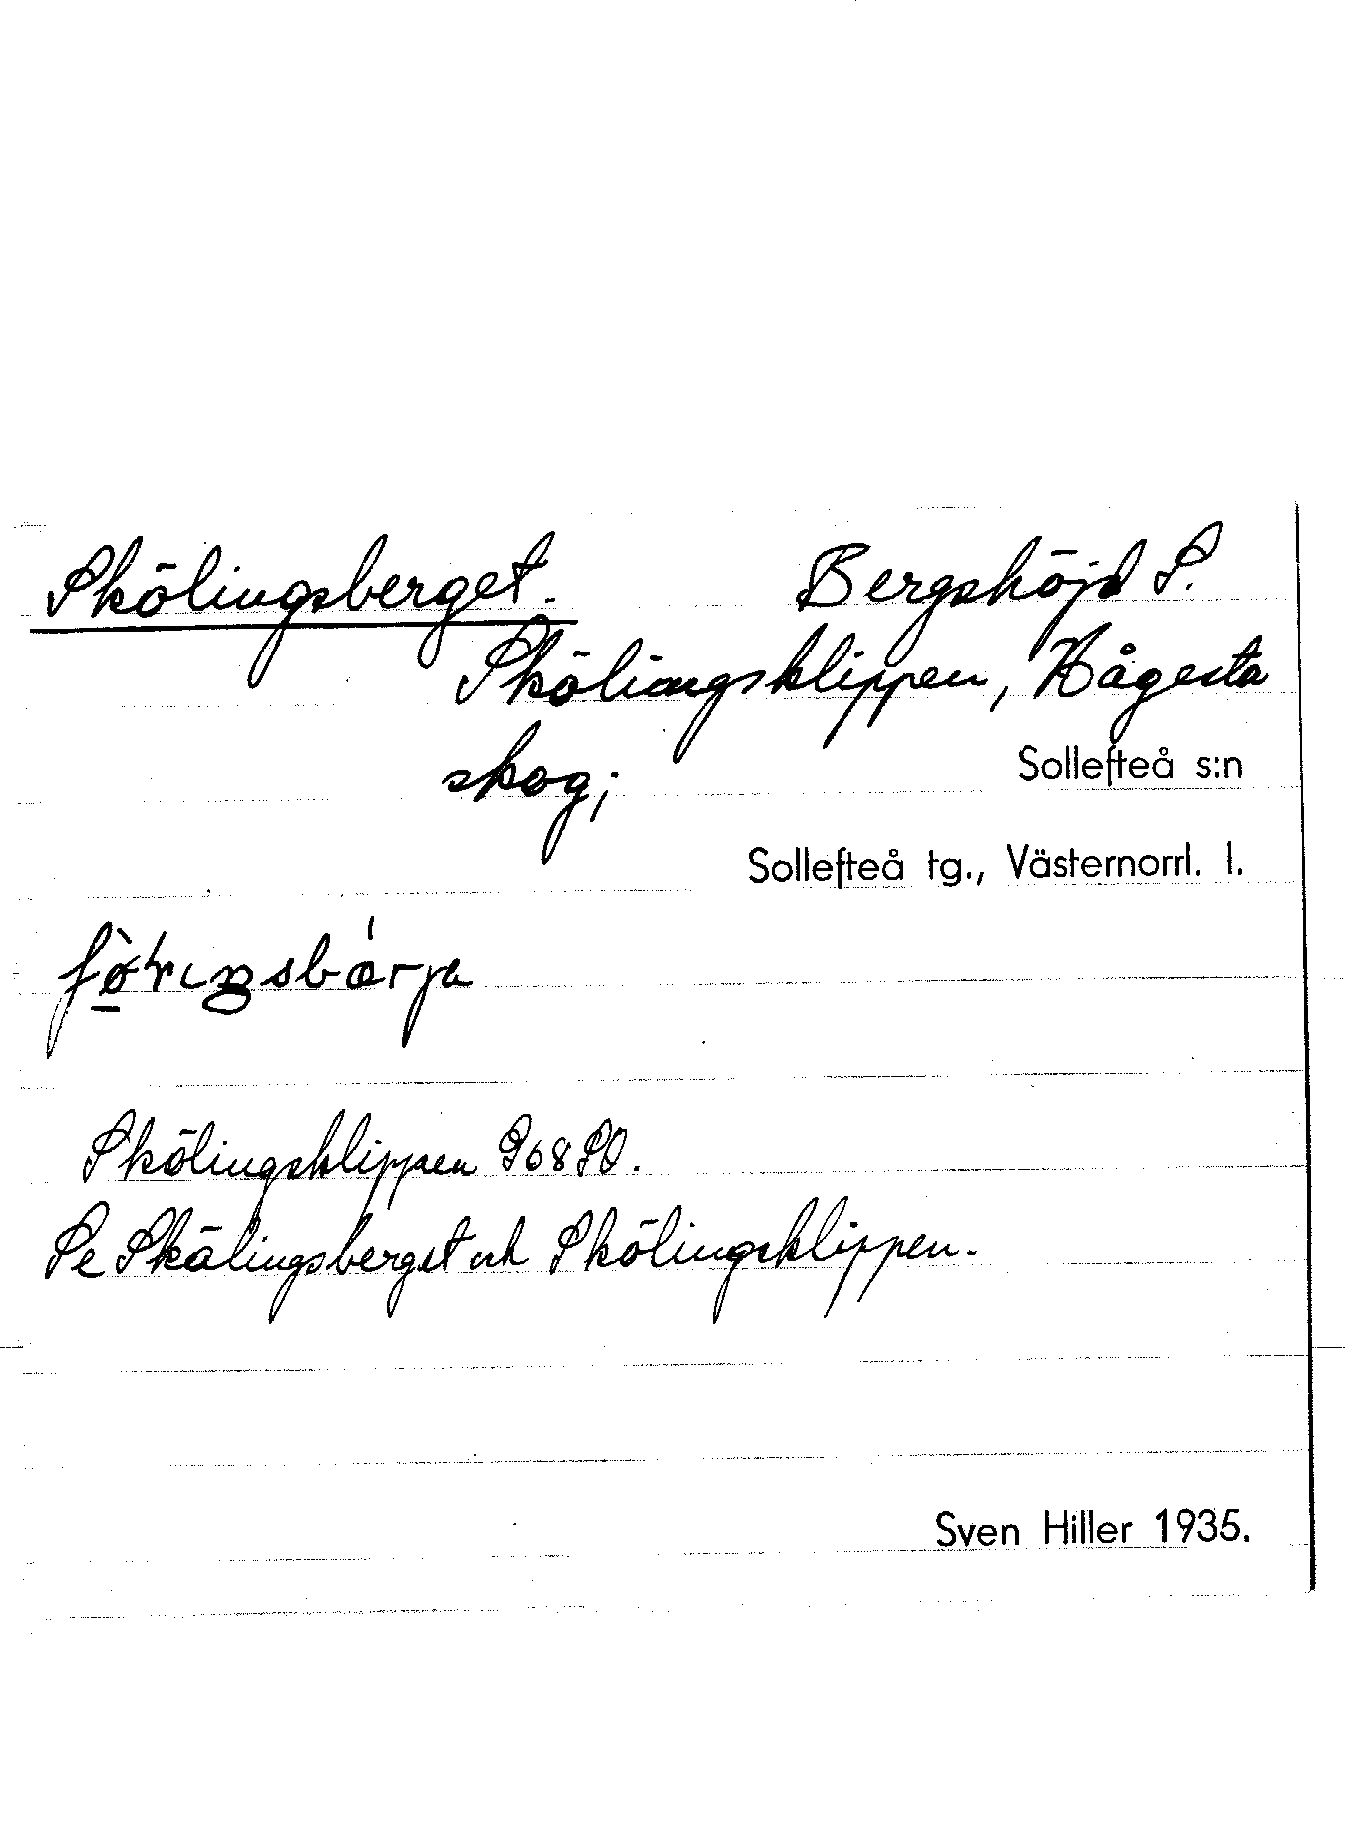 Skölingsberget. Bergshöjd S.
Skölingsklippen, Hågesta
skog;
Sollefteå s:n
Sollefteå tg., Västernorrl. l.
Skölingsklippen 968 SO.
Se Skålingsberget och Skölingsklippen.
Sven Hiller 1935.